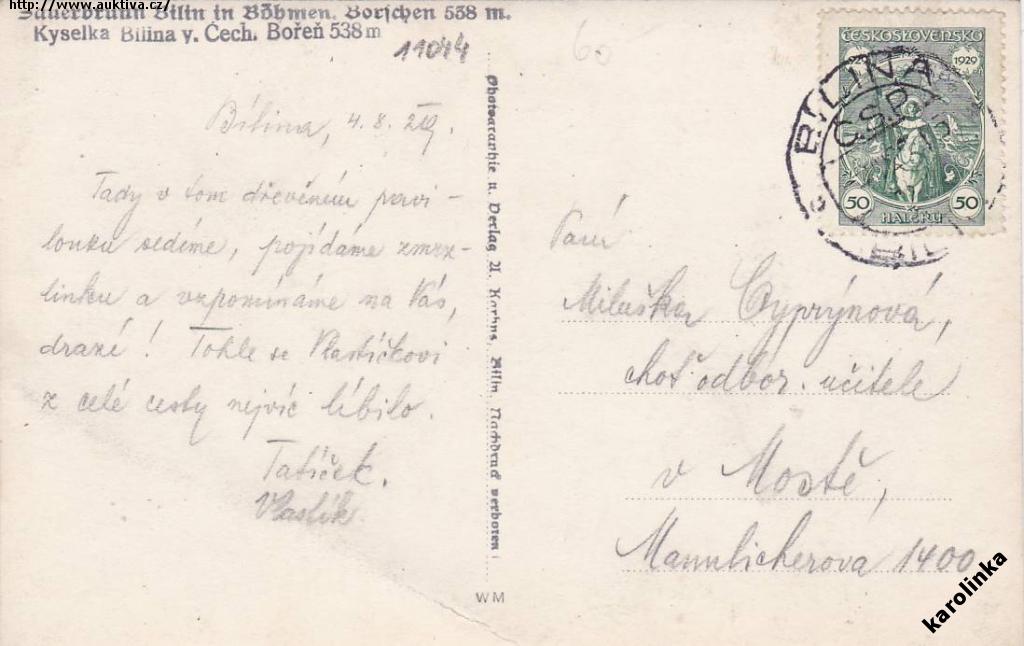 http://www.auktiva.cz/
Sauerbrunn Bilin in Böhmen. Borschen 538 m.
Kyselka Bílina v. Čech. Bořeň 538 m
11044
60
Bílina, 4.8.29.
Tady v tom dřevěném pavi-
lonku sedíme, pojídáme zmrz-
linku a vzpomínáme na Vás,
drazé! Tohle se Vlastíčkovi
z celé cesty nejvíc líbilo.
Tatíček.
Vlastík
Photographie u. Verlag A. Karbus, Bilin. Nachdruck verboten
WM
ČESKOSLOVENSKO
929 1929
50 HALÉŘŮ 50
BÍLINA
ČSR
Paní
Miluška Cyprýnová,
choť odbor. učitele
v Mostě,
Mannlicherova 1400
karolinka